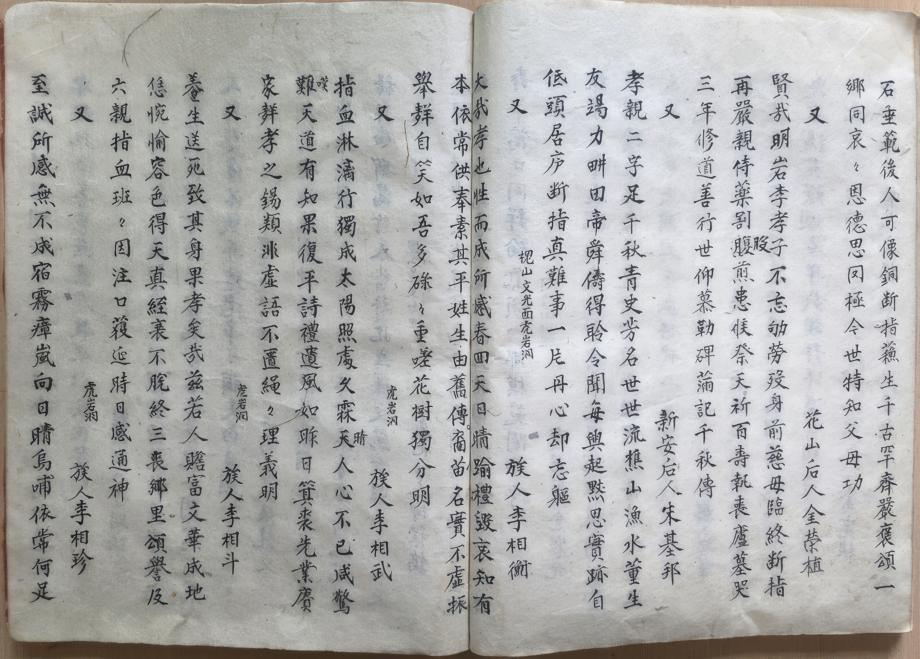 石垂範後人可像銅断指蘓生千古罕齊嚴褒頌一
鄕同哀々恩德思罔極令世特知父母功
又　花山后人金榮植
賢哉明岩李孝子不忘劬勞歿身前慈母臨終断指
再嚴親侍薬割股煎患候祭天祈百壽執喪廬墓哭
三年修道善行世仰慕勒碑蒲記千秋傳
又　新安后人宋基邦
孝親二字足千秋青史芳名世世流樵山漁水董生
友竭力畊田帝舜儔得聆令聞每興起黙思實跡自
低頭居庐断指真難事一片丹心却忘軀
又　槐山文光面虎岩洞　族人李相衡
大哉孝也性而成所感春四天日晴踰禮毀哀知有
本依常供奉素其平姓生由舊傳裔苗名實不虛振
舉群自笑如吾多碌々重嗟花樹獨分明
又　虎岩洞　族人李相武
指血淋漓行獨成太陽照處久霖晴人心不已咸驚
嘆天道有知果復平詩禮遺風如昨日箕裘先業賡
家群孝之錫類非虛語不置繩々理義明
又　虎岩洞　族人李相斗
養生送死致其身果孝矣哉兹若人贍富文華成地
愻惋愉容色得天真絰衰不脫終三喪鄕里頌譽及
六親指血班々因注口蘐延時日感通神
又　虎岩洞　族人李相珍
至誠所感無不成宿霧瘴嵐向日晴烏哺依常何足